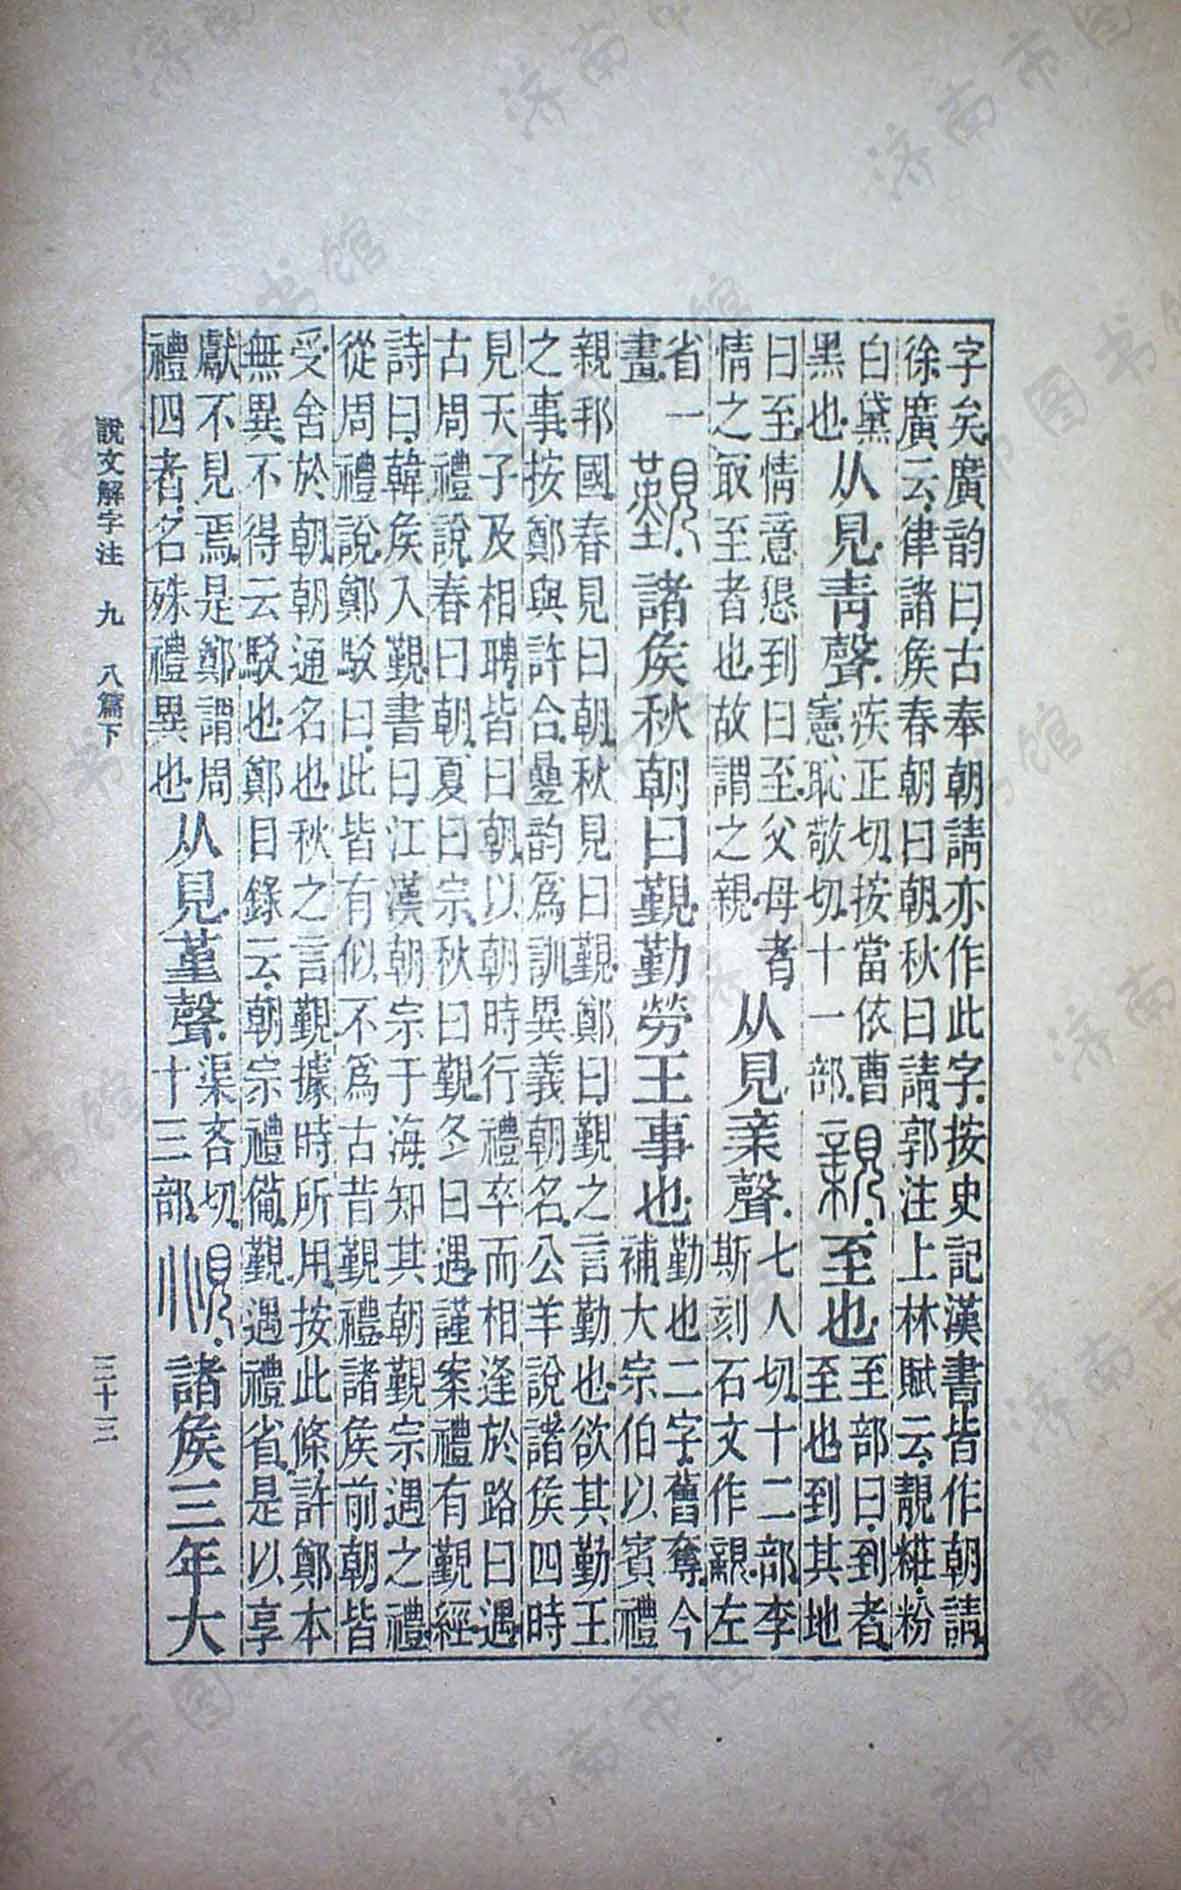 字矣廣韵曰古奉朝請亦作此字按史記漢書皆作朝請
徐廣云律諸矦春朝曰朝秋曰請郭注上林賦云靚糚粉
白黛黑也从見青聲疾正切按當依曹憲恥敬切十一部親至也至部曰到者至也到其地
曰至情意懇到曰至父母者情之㝡至者也故謂之親从見亲聲七人切十二部李斯刻石文作親左
省一畫覲諸矦秋朝曰覲勤勞王事也勤也二字舊奪今補大宗伯以賓禮
親邦國春見曰朝秋見曰覲鄭曰覲之言勤也欲其勤王
之事按鄭與許合曡韵爲訓異義朝名公羊說諸矦四時
見天子及相聘皆曰朝以朝時行禮卒而相逢於路曰遇
古周禮說春曰朝夏曰宗秋曰覲冬曰遇謹案禮有覲經
詩曰韓矦入覲書曰江漢朝宗于海知其朝覲宗遇之禮
從周禮說鄭駁曰此皆有似不爲古昔覲禮諸矦前朝皆
受舍於朝朝通名也秋之言覲據時所用按此條許鄭本
無異不得云駁也鄭目錄云朝宗禮備覲遇禮省是以享
獻不見焉是鄭謂周禮四者名殊禮異也从見堇聲渠吝切十三部覜諸矦三年大
說文解字注 九 八篇下 三十三
济南市图书馆